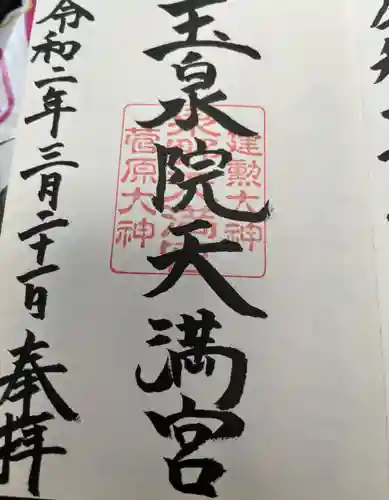 玉泉院天満宮
令和二年三月二十一日 奉拝
建勲大神
菅原大神